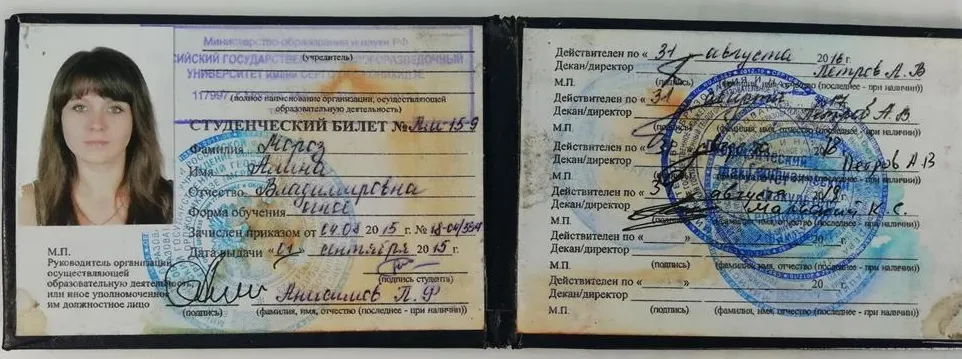 Министерство образования и науки РФ
(учредитель)
СИЙСКИЙ ГОСУДАРСТВЕННЫЙ ГЕОЛОГОРАЗВЕДОЧНЫЙ
УНИВЕРСИТЕТ ИМЕНИ СЕРГО ОРДЖОНИКИДЗЕ
117997
(полное наименование организации, осуществляющей
образовательную деятельность)
СТУДЕНЧЕСКИЙ БИЛЕТ №
Фамилия Мороз
Имя Алина
Отчество Владимировна
Форма обучения
Зачислен приказом от 04.08 2015 г. №
Дата выдачи «01» сентября 2015 г.
(подпись студента)
М.П.
Руководитель организации,
осуществляющей
образовательную деятельность,
или иное уполномоченное
им должностное лицо
Анисимов П. Ф
(подпись) (фамилия, имя, отчество (последнее - при наличии))
Действителен по «31 августа 2016 г.
Декан/директор Петров А. В
М.П. (подпись) (фамилия, имя, отчество (последнее - при наличии))
Действителен по «31 августа 2017
Декан/директор Петров А. В
М.П. (подпись) (фамилия, имя, отчество (последнее - при наличии))
Действителен по « 18
Декан/директор Петров А. В
М.П. (подпись) (фамилия, имя, отчество (последнее - при наличии))
Действителен по « августа 19
Декан/директор К. С.
М.П. (подпись) (фамилия, имя, отчество (последнее - при наличии))
Действителен по « » 20 г.
Декан/директор
М.П. (подпись) (фамилия, имя, отчество (последнее - при наличии))
Действителен по « » 20 г.
Декан/директор
М.П. (подпись) (фамилия, имя, отчество (последнее - при наличии))